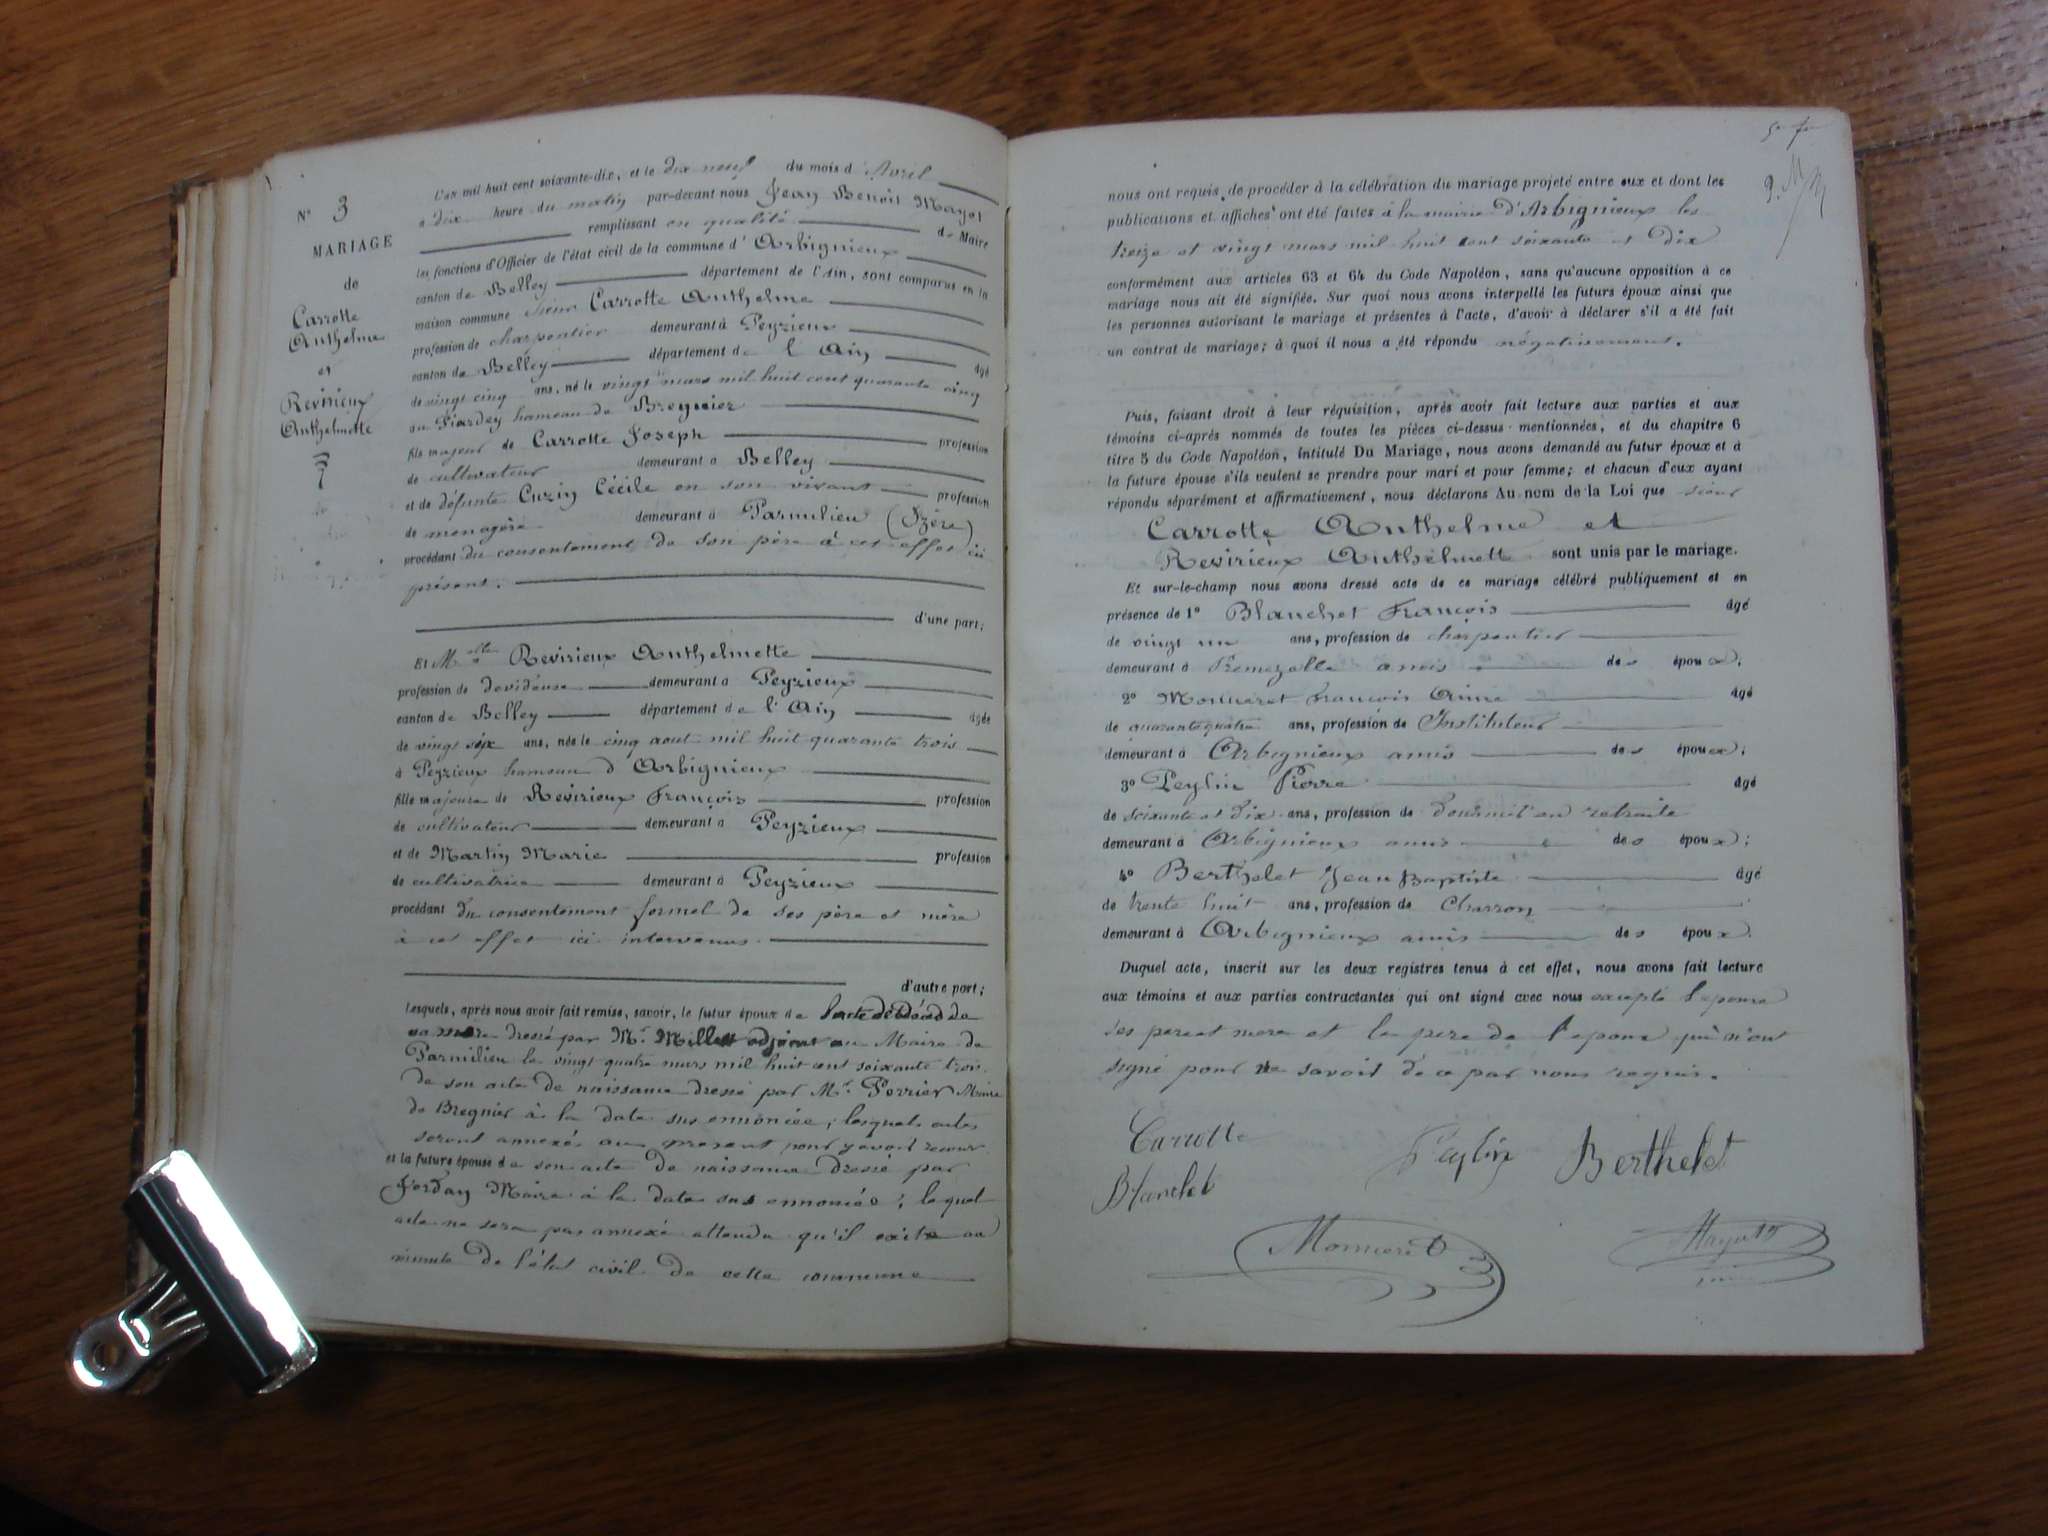 N° 3
MARIAGE
de
Carrotte
Anthelme
et
Revirieux
Anthelmette
L'an mil huit cent soixante-dix, et le dix neuf du mois d'Avril
à dix heure du matin par-devant nous Jean Benoit Mayot
remplissant en qualité de Maire
les fonctions d'Officier de l'état civil de la commune d'Arbignieux
canton de Belley département de l'Ain, sont comparus en la
maison commune sieur Carrotte Anthelme
profession de charpentier demeurant à Peyzieux
canton de Belley département de l'Ain âgé
de vingt cinq ans, né le vingt mars mil huit cent quarante cinq
au hameau de Bregnier
fils majeur de Carrotte Joseph profession
de cultivateur demeurant à Belley
et de défunte Cuzin Cécile en son vivant profession
de menagère demeurant à Parmilieu (Izère)
procédant du consentement de son père à cet effet ici
présent.
d'une part;
Et Melle Revirieux Anthelmette
profession de devideuse demeurant à Peyzieux
canton de Belley département de l'Ain âgée
de vingt six ans, née le cinq aout mil huit quarante trois
à Peyzieux hameau d'Arbignieux
fille majeure de Revirieux François profession
de cultivateur demeurant à Peyzieux
et de Martin Marie profession
de cultivatrice demeurant à Peyzieux
procédant du consentement formel de ses père et mère
à cet effet ici intervenus.
d'autre part;
Lesquels, après nous avoir fait remise, savoir, le futur époux de l'acte de décéd de
sa mère dressé par Mr. Millet adjoint au Maire de
Parmilieu le vingt quatre mars mil huit cent soixante trois
de son acte de naissance dressé par Mr. Perrier Maire
de Bregnier à la date sus ennoncée, lesquels actes
seront annexés au présent pour y avoir recour
et la future épouse de son acte de naissance dressé par
Jordan Maire à la date sus ennoncée; lequel
acte ne sera pas annexé attendu qu'il exite au
minute de l'état civil de cette commune
nous ont requis de procéder à la célébration du mariage projeté entre eux et dont les
publications et affiches ont été faites à la mairie d'Arbignieux les
treize et vingt mars mil huit cent soixante et dix
conformément aux articles 63 et 64 du Code Napoléon, sans qu'aucune opposition à ce
mariage nous ait été signifiée. Sur quoi nous avons interpellé les futurs époux ainsi que
les personnes autorisant le mariage et présentes à l'acte, d'avoir à déclarer s'il a été fait
un contrat de mariage; à quoi il nous a été répondu négativement.
Puis, faisant droit à leur réquisition, après avoir fait lecture aux parties et aux
témoins ci-après nommés de toutes les pièces ci-dessus mentionnées, et du chapitre 6
titre 5 du Code Napoléon, intitulé Du Mariage, nous avons demandé au futur époux et à
la future épouse s'ils veulent se prendre pour mari et pour femme; et chacun d'eux ayant
répondu séparément et affirmativement, nous déclarons Au nom de la Loi que sieur
Carrotte Anthelme et
Revirieux Anthelmette sont unis par le mariage.
Et sur-le-champ nous avons dressé acte de ce mariage célébré publiquement et en
présence de 1° Blanchet François âgé
de vingt un ans, profession de charpentier
demeurant à amis des époux;
2° Monneret François Aimé âgé
de quarante quatre ans, profession de Instituteur
demeurant à Arbignieux amis des époux;
3° Peylin Pierre âgé
de soixante et dix ans, profession de en retraite
demeurant à Arbignieux amis des époux;
4° Berthelet Jean Baptiste âgé
de trente huit ans, profession de Charron
demeurant à Arbignieux amis des époux.
Duquel acte, inscrit sur les deux registres tenus à cet effet, nous avons fait lecture
aux témoins et aux parties contractantes qui ont signé avec nous excepté l'epouse
ses pere et mere et le pere de l'epoux qui n'ont
signé pour ne savoir de ce par nous requis.
Carrotte Peylin Berthelet
Blanchet
Monneret Mayot